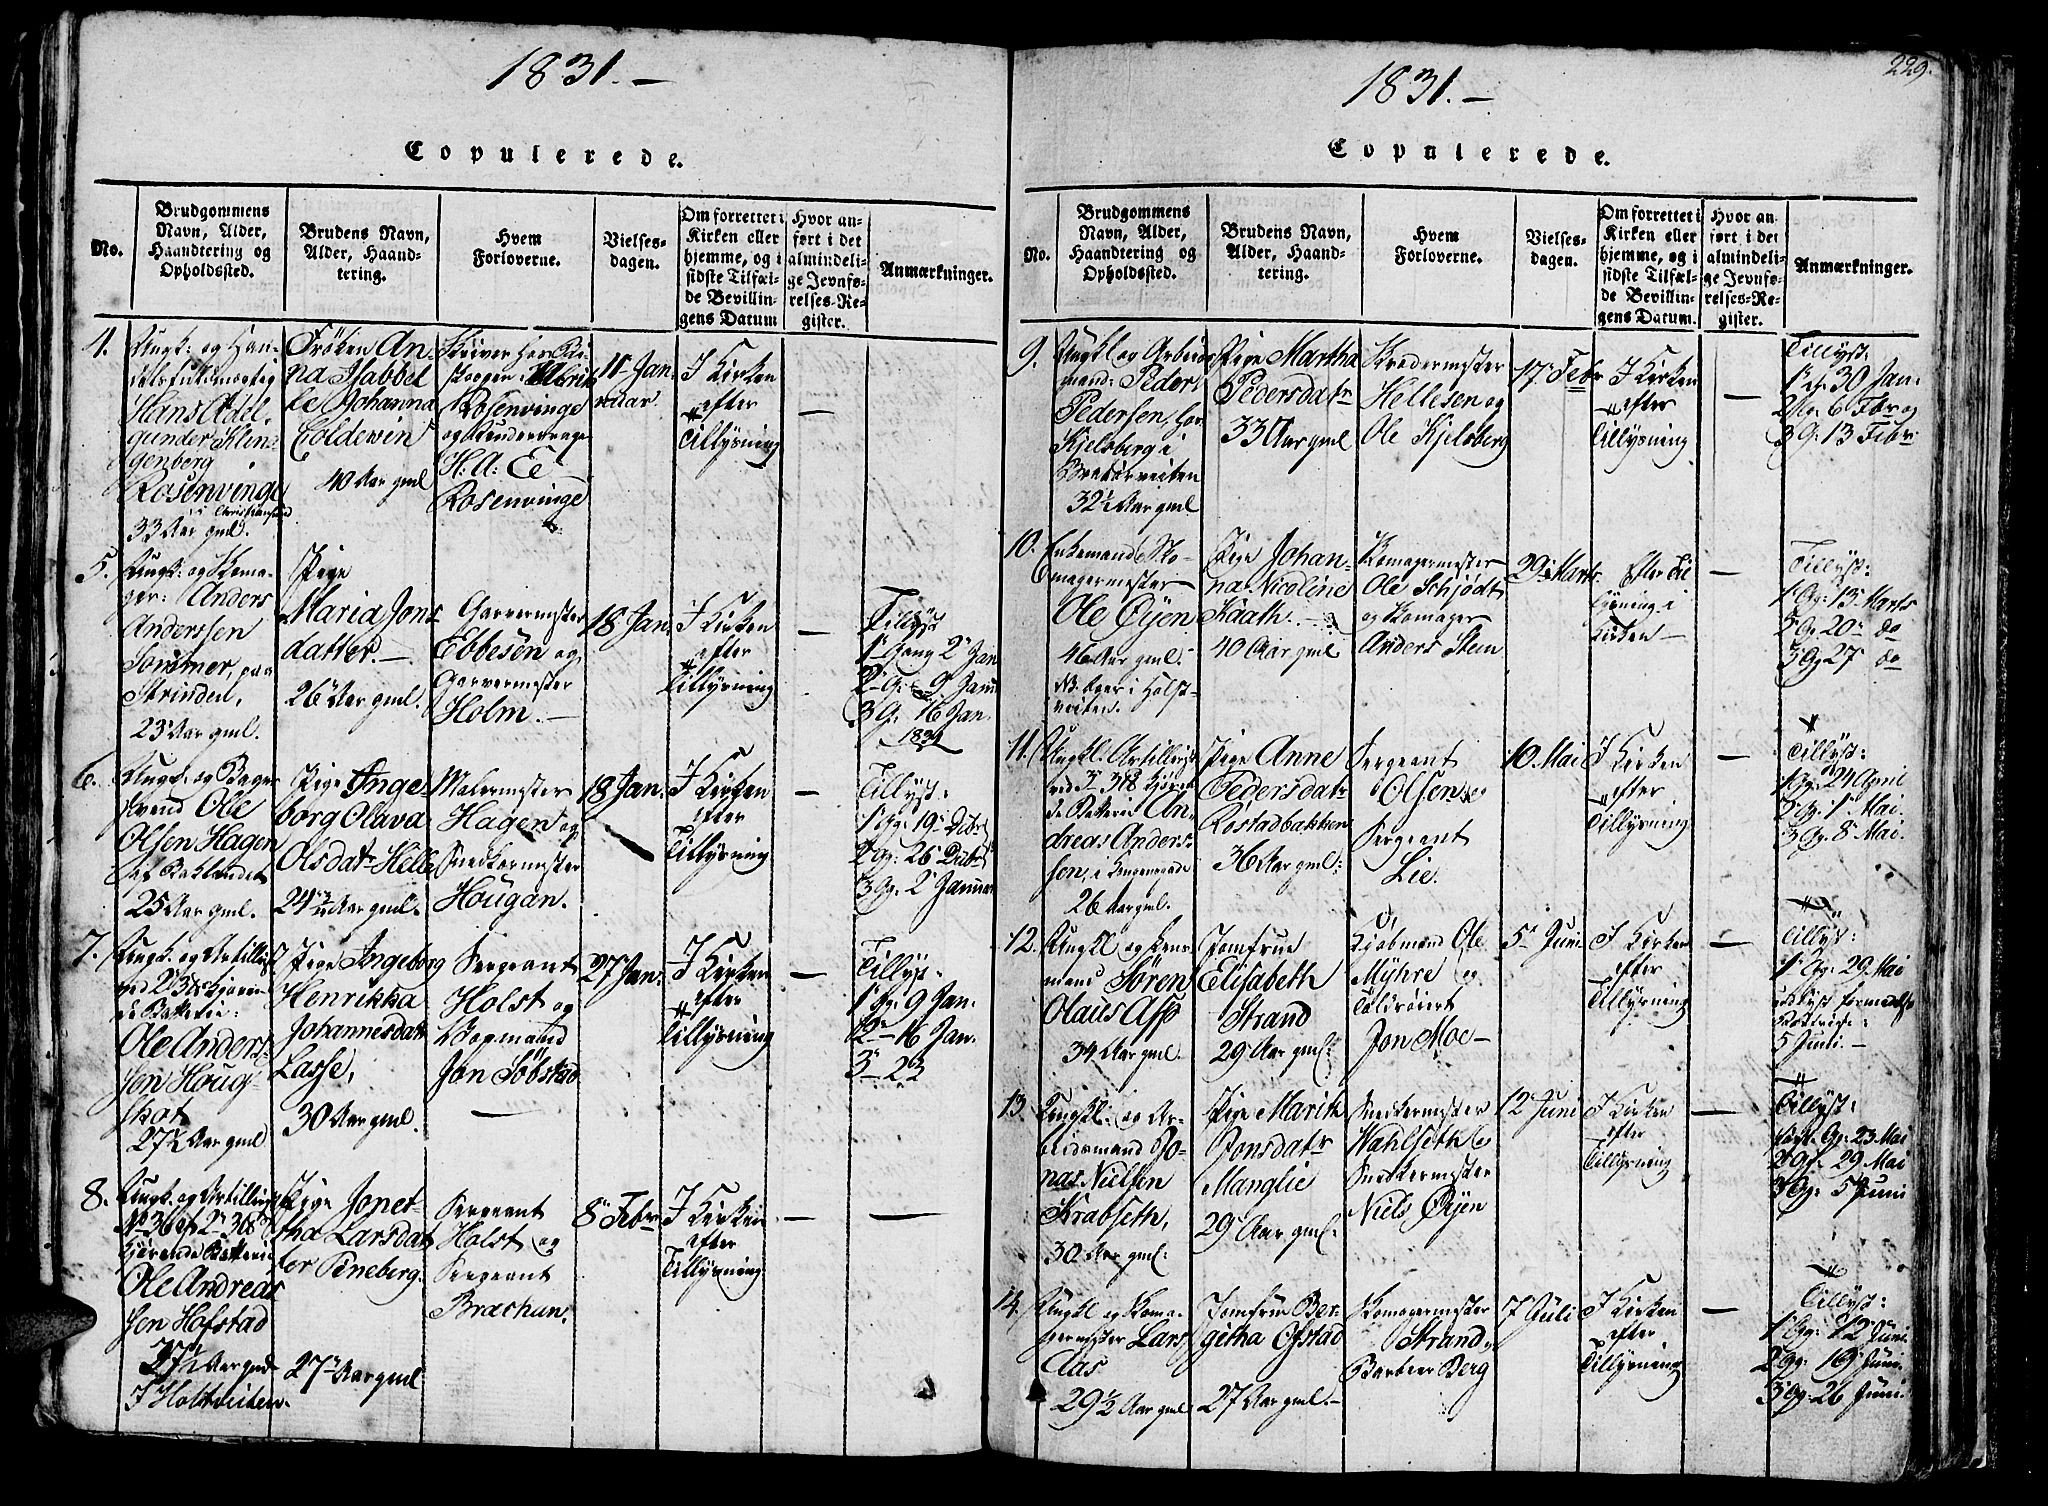 1831.—
Copulerede.
No.
Brudgommens
Navn, Alder,
Haandtering og
Opholdssted.
Brudens Navn,
Alder, Haand-
tering.
Hvem
Forloverne.
Vielses-
dagen.
Om forrettet i
Kirken eller
hjemme, og i
sidste Tilfæl-
de Bevillin-
gens Datum
Hvor an-
ført i det
almindeli-
ge Jevnfø-
relses-Re-
gister.
Anmærkninger.
4.
Ungk: og Han-
Hans Adel
gunder Klin-
genberg
Rosenvinge
i Christiansund
33 Aar gml.
Frøken An-
na Isabel
le Johanna
Coldewin
40 Aar gml
Rosenvinge
H: A: E
Rosenvinge
11 Jan
uar.
I Kirken
efter
Tillysning
—
5.
Ungk: og Skoma-
ger: Anders
Anderssen
Sorömer, paa
Strinden,
23 Aar gml.
Pige
Maria Jons
datter.—
26 Aar gml.
Garvermester
Ebbesen og
Garvermester
Holm.—
18 Jan:
I Kirken
efter
Tillysning
—
Tillyst
1ste Gang 2 Jan
2 G: 9 Januar
3 G: 16 Jan.
1831
6.
Ungk: og Bager
svend Ole
Olsen Hagen
af Baklandet
25 Aar gml.
Pige Inge-
borg Olava
Olsdatr Helle
24 Aar gml.
Malermester
Hagen og
Snedkermester
Hougan.
18 Jan.
I Kirken
efter
Tillysning
—
Tillyst:
1 Gg: 19 Dcbr
2 Gg: 26 Dcbr
3 Gg: 2 Januar
7.
Ungk. og Artillerist
Ole Anders-
sen Houg-
skot
27½ Aar gml
Pige Ingeborg
Henrikka
Johannesdatr
Lasse,
30 Aar gml.
Sergeant
Holst og
Vogmand
Jon Söbstad
—
27 Jan.
I Kirken
efter
Tillysning
—
Tillyst:
1 Gg: 9 Jan.
2 — 16 Jan.
3 — 23
8.
Ungk. og Artillerist
No 36 af 2
kjørende Batterie
Ole Andreas
sen Hofstad
27½ Aar gml
I Holtveiten.
Pige Jonet-
tha Larsdat
ter Pineberg.
27 Aar gml
Sergeant
Holst og
Sergeant
Brashun.
8 Febr
I Kirken
efter
Tillysning
—
—
1831.—
229.
Copulerede.
No.
Brudgommens
Navn, Alder,
Haandtering og
Opholdssted.
Brudens Navn,
Alder, Haand-
tering.
Hvem
Forloverne.
Vielses-
dagen.
Om forrettet i
Kirken eller
hjemme, og i
sidste Tilfæl-
de Bevillin-
gens Datum.
Hvor an-
ført i det
almindeli-
ge Jevnfø-
relses-Re-
gister.
Anmærkninger.
9.
Ungkl og Arbeids
mand: Peder
Pedersen, hos
Kjelsberg i
32½ Aar gml
Pige Martha
Pedersdatr
33 Aar gml
Hellesen og
Ole Kjelsberg
17 Febr
I Kirken
efter
Tillysning
—
Tillyst:
1 G: 30 Jan.
2 G: 6 Fbr og
3 G: 13 Febr:
10.
Enkemand Sko-
magermester
Ole Øyen
46 Aar gml.
NB boer i Holst-
veiten.
Pige Johan-
na Nicoline
Kaath.—
40 Aar gml
Skomagermester
Ole Schjödt
og Skomager
Anders Stein
29 Marts
Efter Til
lysning i
Kirken—
—
Tillyst:
1 Gg: 13 Marts
2 G: 20 do
3 G 27 do
11.
Ungkl. Artillerist
de Batterie An-
dreas Anders-
sen, i
26 Aar gml.
Pige Anne
Pedersdatr
Rostadbakken
36 Aar gml:
Sergeant
Olsen &
Sergeant
Lie.
10 Mai
I Kirken
efter
Tillysning
—
Tillyst:
1 Gg: 24 April
2 Gg: 1 Mai.
3 Gg: 8 Mai.
12.
Ungkl og
mand Sören
Olaus Asp
34 Aar gml.
Jomfrue
Elisabeth
Strand
29 Aar gml:
Kjöbmand Ole
Myhre og
Toldroiert
Jon Moe—
5 Juni
I Kirken
efter
Tillysning
—
Tillyst:
1 Gg: 29 Mai
5 Juni.—
13
Ungkl: og Ar-
beidsmand Jo-
nas Nielsen
Krabseth,
30 Aar gml.
Pige Marith
Jonsdatr
Manglie
29 Aar gml.
Snedkermester
Wahlseth &
Snedkermester
Niels Øyen
12 Juni
I Kirken
efter
Tillysning
—
Tillyst:
Gg: 23 Mai
2 Gg: 29 Mai
3 Gg: 5 Juni
14.
Ungkl og Skoma-
germester Lars
Aas
29½ Aar gml
Jomfru Ber-
githa Ofstad
27 Aar gml.—
Skomagermester
Strand og
Barbeer Berg
7 Juli
I Kirken
efter
Tillysning
—
Tillyst:
1 Gg: 12 Juni
2 Gg: 19 Juni
3 Gg: 26 Juni.